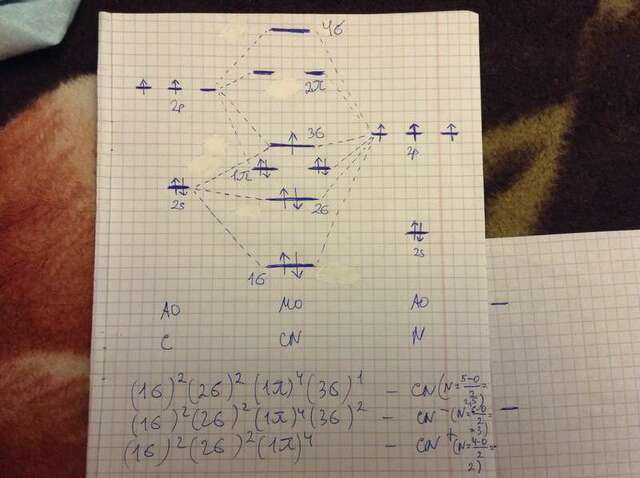 4σ
2π
2p
3σ
2p
1π
2s
2σ
2s
1σ
AO MO AO
C CN N
(1σ)²(2σ)²(1π)⁴(3σ)¹ – CN (N=5-0/2=2,5)
(1σ)²(2σ)²(1π)⁴(3σ)² – CN⁻ (N=6-0/2=3)
(1σ)²(2σ)²(1π)⁴ – CN⁺ (N=4-0/2=2)